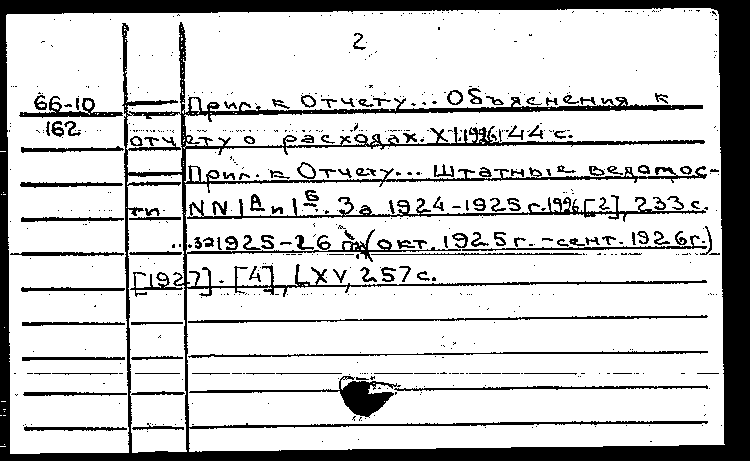 2
66-10 — Прил. к Отчету... Объяснения к
162 отчету о расходах. XI.1926, 44 с.
— Прил. к Отчету... Штатные ведомос-
ти NN 1А и 1Б. За 1924-1925 г. 1926 [2], 233 с.
...за 1925-26 (окт. 1925 г. - сент. 1926 г.)
[1927]. [4], LXV, 257 с.